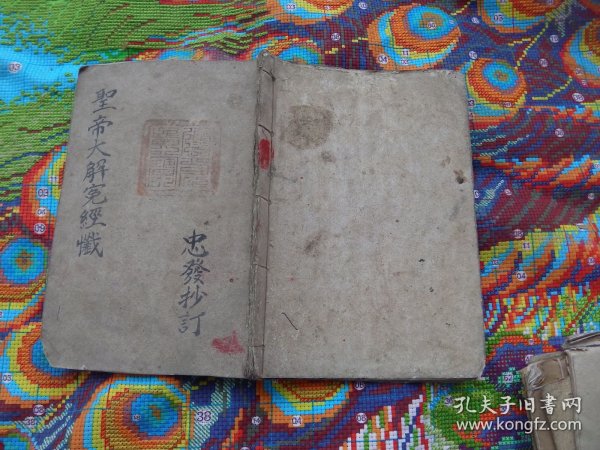 聖帝大解冤經懺
忠發抄訂
38
孔夫子旧书网
www.kongfz.com